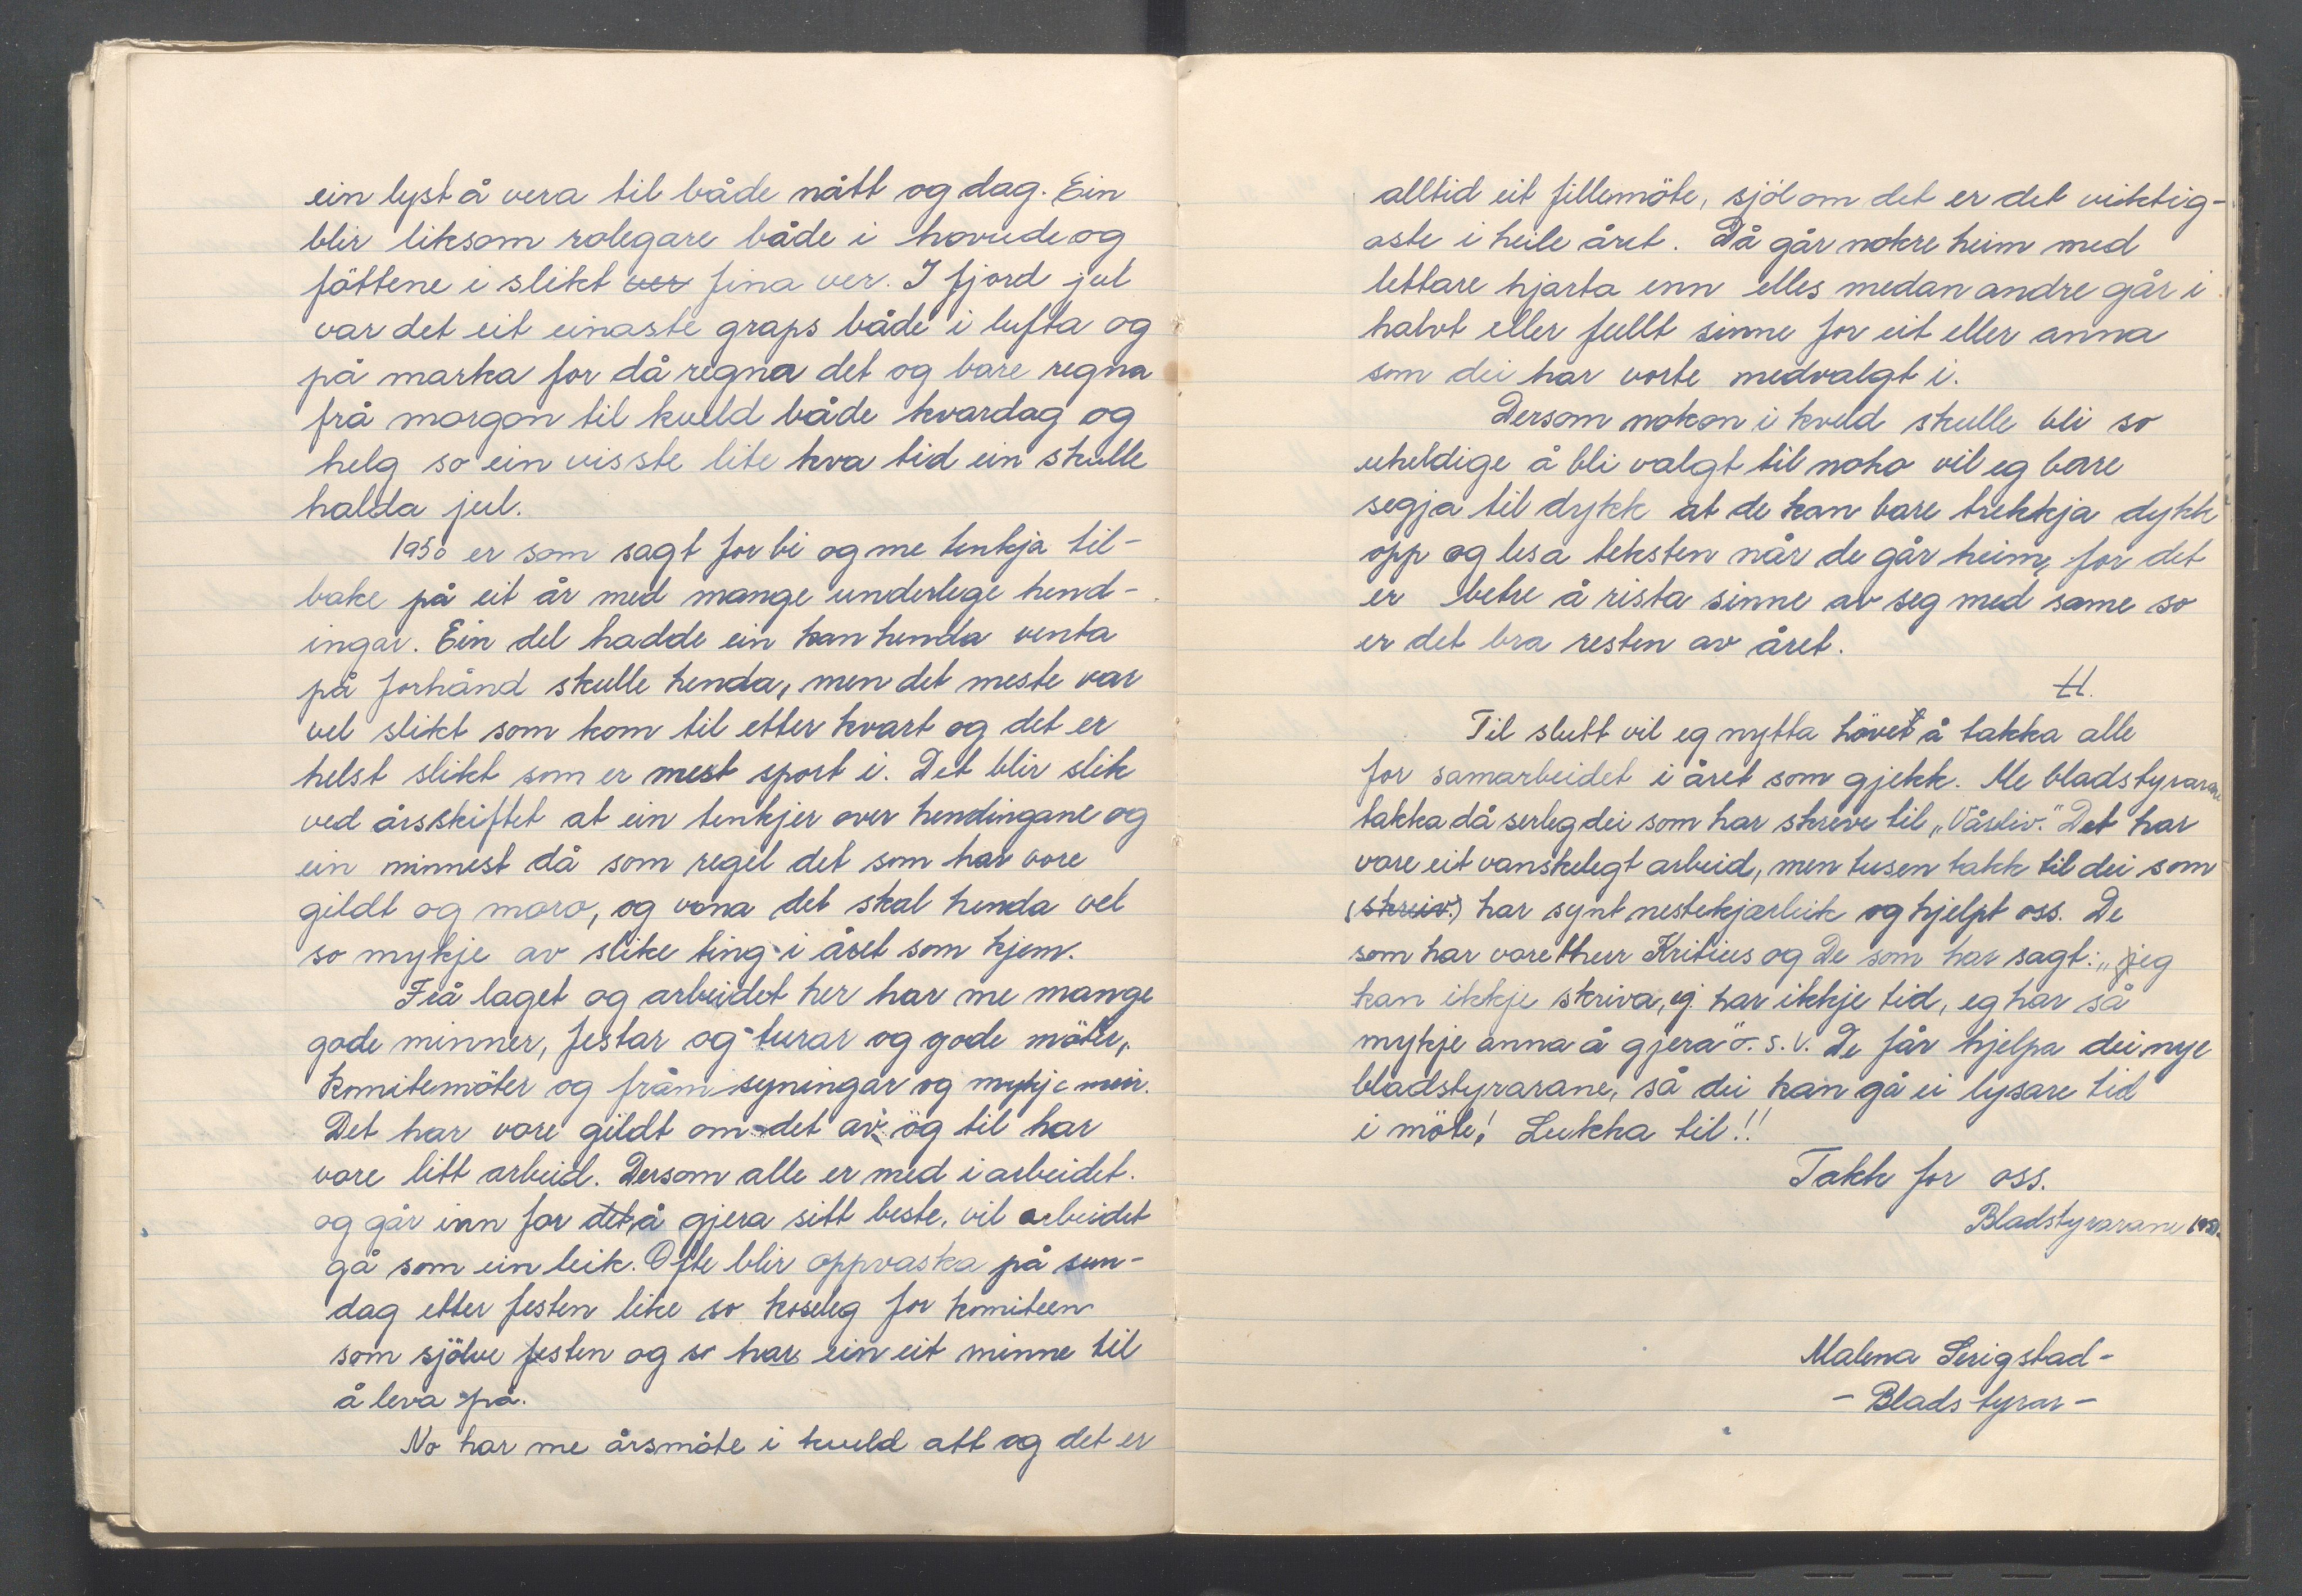 ein lyst å vera til både nått og dag. Ein
blir liksom rolegare både i hovude og
föttene i slikt ver fina ver. I fjord jul
var det eit einaste graps både i lufta og
på marka for då regna det og bare regna
frå morgon til kveld både kvardag og
helg so ein visste lite kva tid ein skulle
halda jul.
1950 er som sagt forbi og me tenkja til-
bake på eit år med mange underlege hend-
ingar. Ein del hadde ein kan henda venta
på forhånd skulle henda, men det meste var
vel slikt som kom til etter kvart og det er
helst slikt som er mest sport i. Det blir slik
ved årsskiftet at ein tenkjer over hendingane og
ein minnest då som regel det som har vore
gildt og moro, og vona det skal henda vel
so mykje av slike ting i året som kjem.
Frå laget og arbeidet her har me mange
gode minner, festar og turar og gode möter,
komitemöter og fråmsyningar og mykje meir.
Det har vore gildt om det av og til har
vore litt arbeid. Dersom alle er med i arbeidet
og går inn for det å gjera sitt beste, vil arbeidet
gå som ein leik. Ofte blir oppvaska på sun-
dag etter festen like so koseleg for komiteen
som sjölve festen og so har ein eit minne til
å leva på.
No har me årsmöte i kveld att og det er
alltid eit fillemöte, sjöl om det er det viktig-
aste i heile året. Då går nokre heim med
lettare hjarta enn elles medan andre går i
halvt eller fullt sinne for eit eller anna
som dei har vorte medvalgt i.
Dersom nokon i kveld skulle bli so
uheldige å bli valgt til noko vil eg bare
segja til dykk at de kan bare trekkja dykk
opp og lesa teksten når de går heim, for det
er betre å rista sinne av seg med same so
er det bra resten av året.
H.
Til slutt vil eg nytta hövet å takka alle
for samarbeidet i året som gjekk. Me bladstyrarane
takka då serleg dei som har skreve til „Vårliv." Det har
vare eit vanskelegt arbeid, men tusen takk til dei som
(skreiv) har synt nestekjærleik og hjelpt oss. De
som har vare herr Kritius og De som har sagt: „jeg
kan ikkje skriva, ej har ikkje tid, eg har så
mykje anna å gjera" o. s. v. De får hjelpa dei nye
bladstyrarane, så dei kan gå ei lysare tid
i möte! Lukka til!!
Takk for oss.
Bladstyrarane 1950.
Malena Serigstad-
- Bladstyrar -